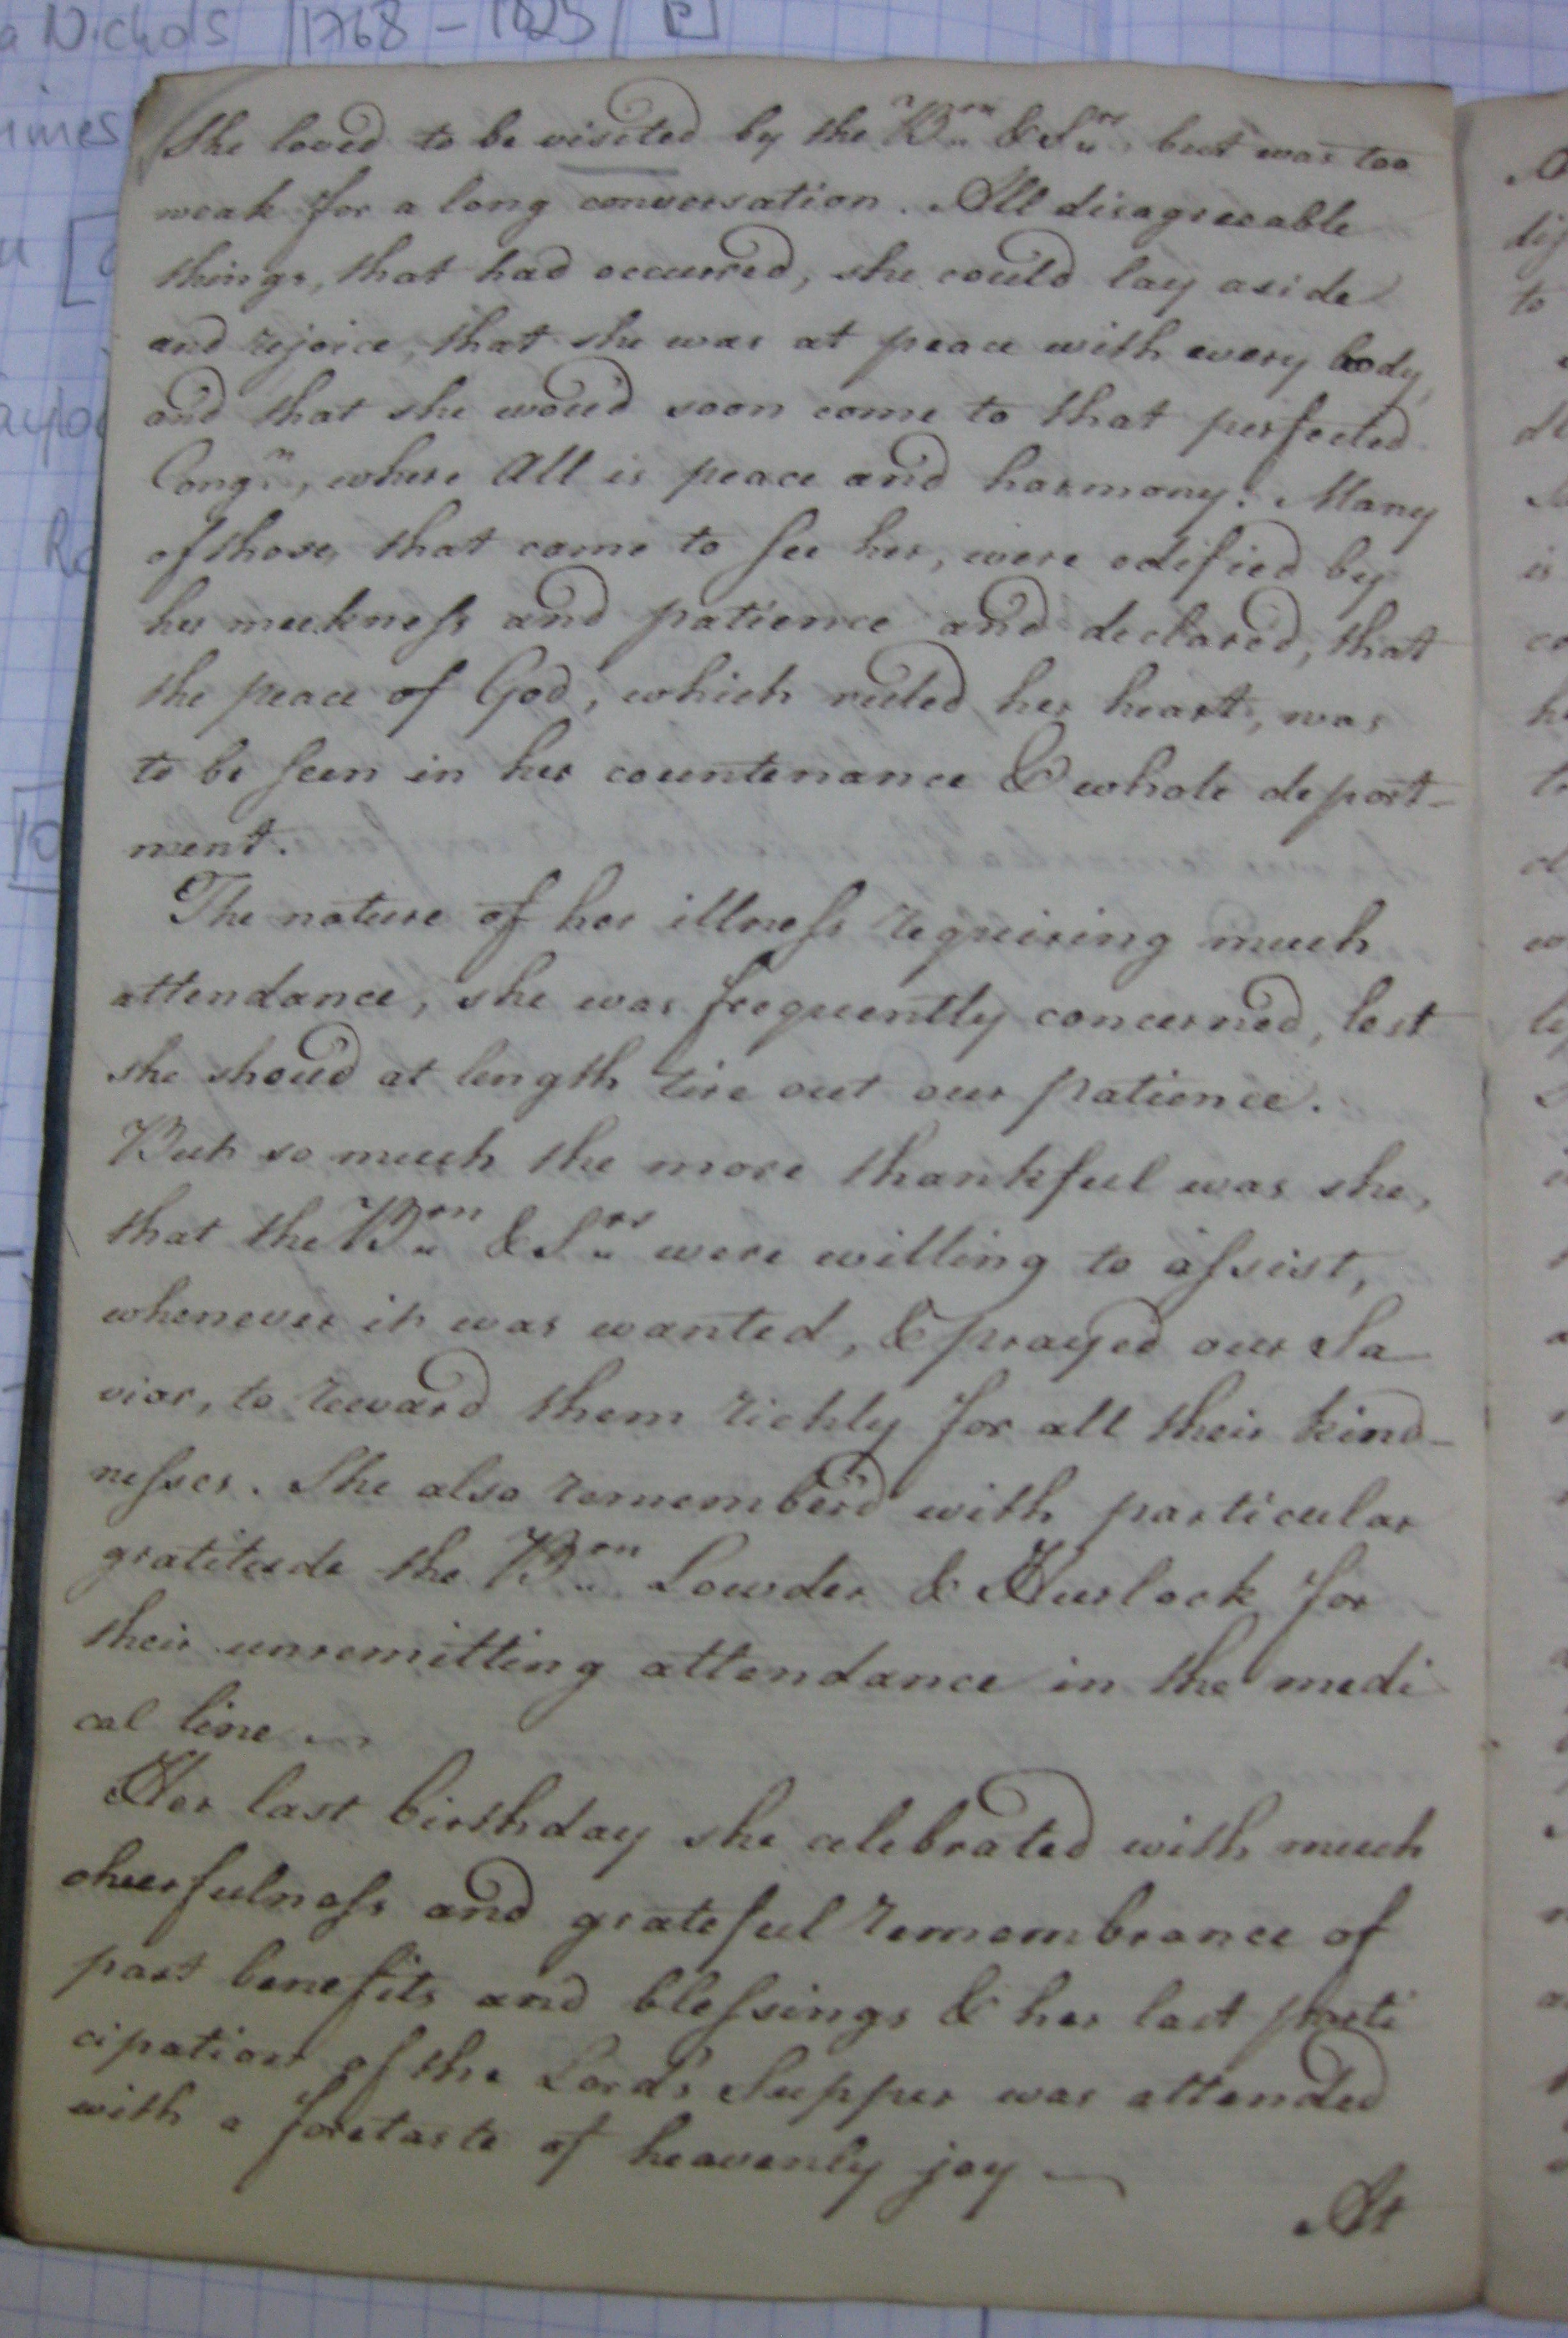 a Nichols 1768 – 1825 P
She loved to be visited by the Bren & Srs but was too
weak for a long conversation. All disagreeable
things, that had occurred, she could lay aside
and rejoice, that she was at peace with every body,
and that she wou'd soon come to that perfected
Congn, where All is peace and harmony. Many
of those, that came to see her, were edified by
her meekness and patience and declared, that
the peace of God, which ruled her heart, was
to be seen in her countenance & whole deport-
ment.
The nature of her illness requiring much
attendance, she was frequently concerned, lest
she shou'd at length tire out our patience.
But so much the more thankful was she,
that the Bren & Srs were willing to assist,
whenever it was wanted, & prayed our Sa
vior, to reward them richly for all their kind-
nesses. She also remember'd with particular
gratitude the Bren Lowder & Hurlock for
their unremitting attendance in the medi
cal line
Her last birthday she celebrated with much
cheerfulness and grateful remembrance of
past benefits and blessings & her last parti
cipation of the Lord's Supper was attended
with a foretaste of heavenly joy —
At